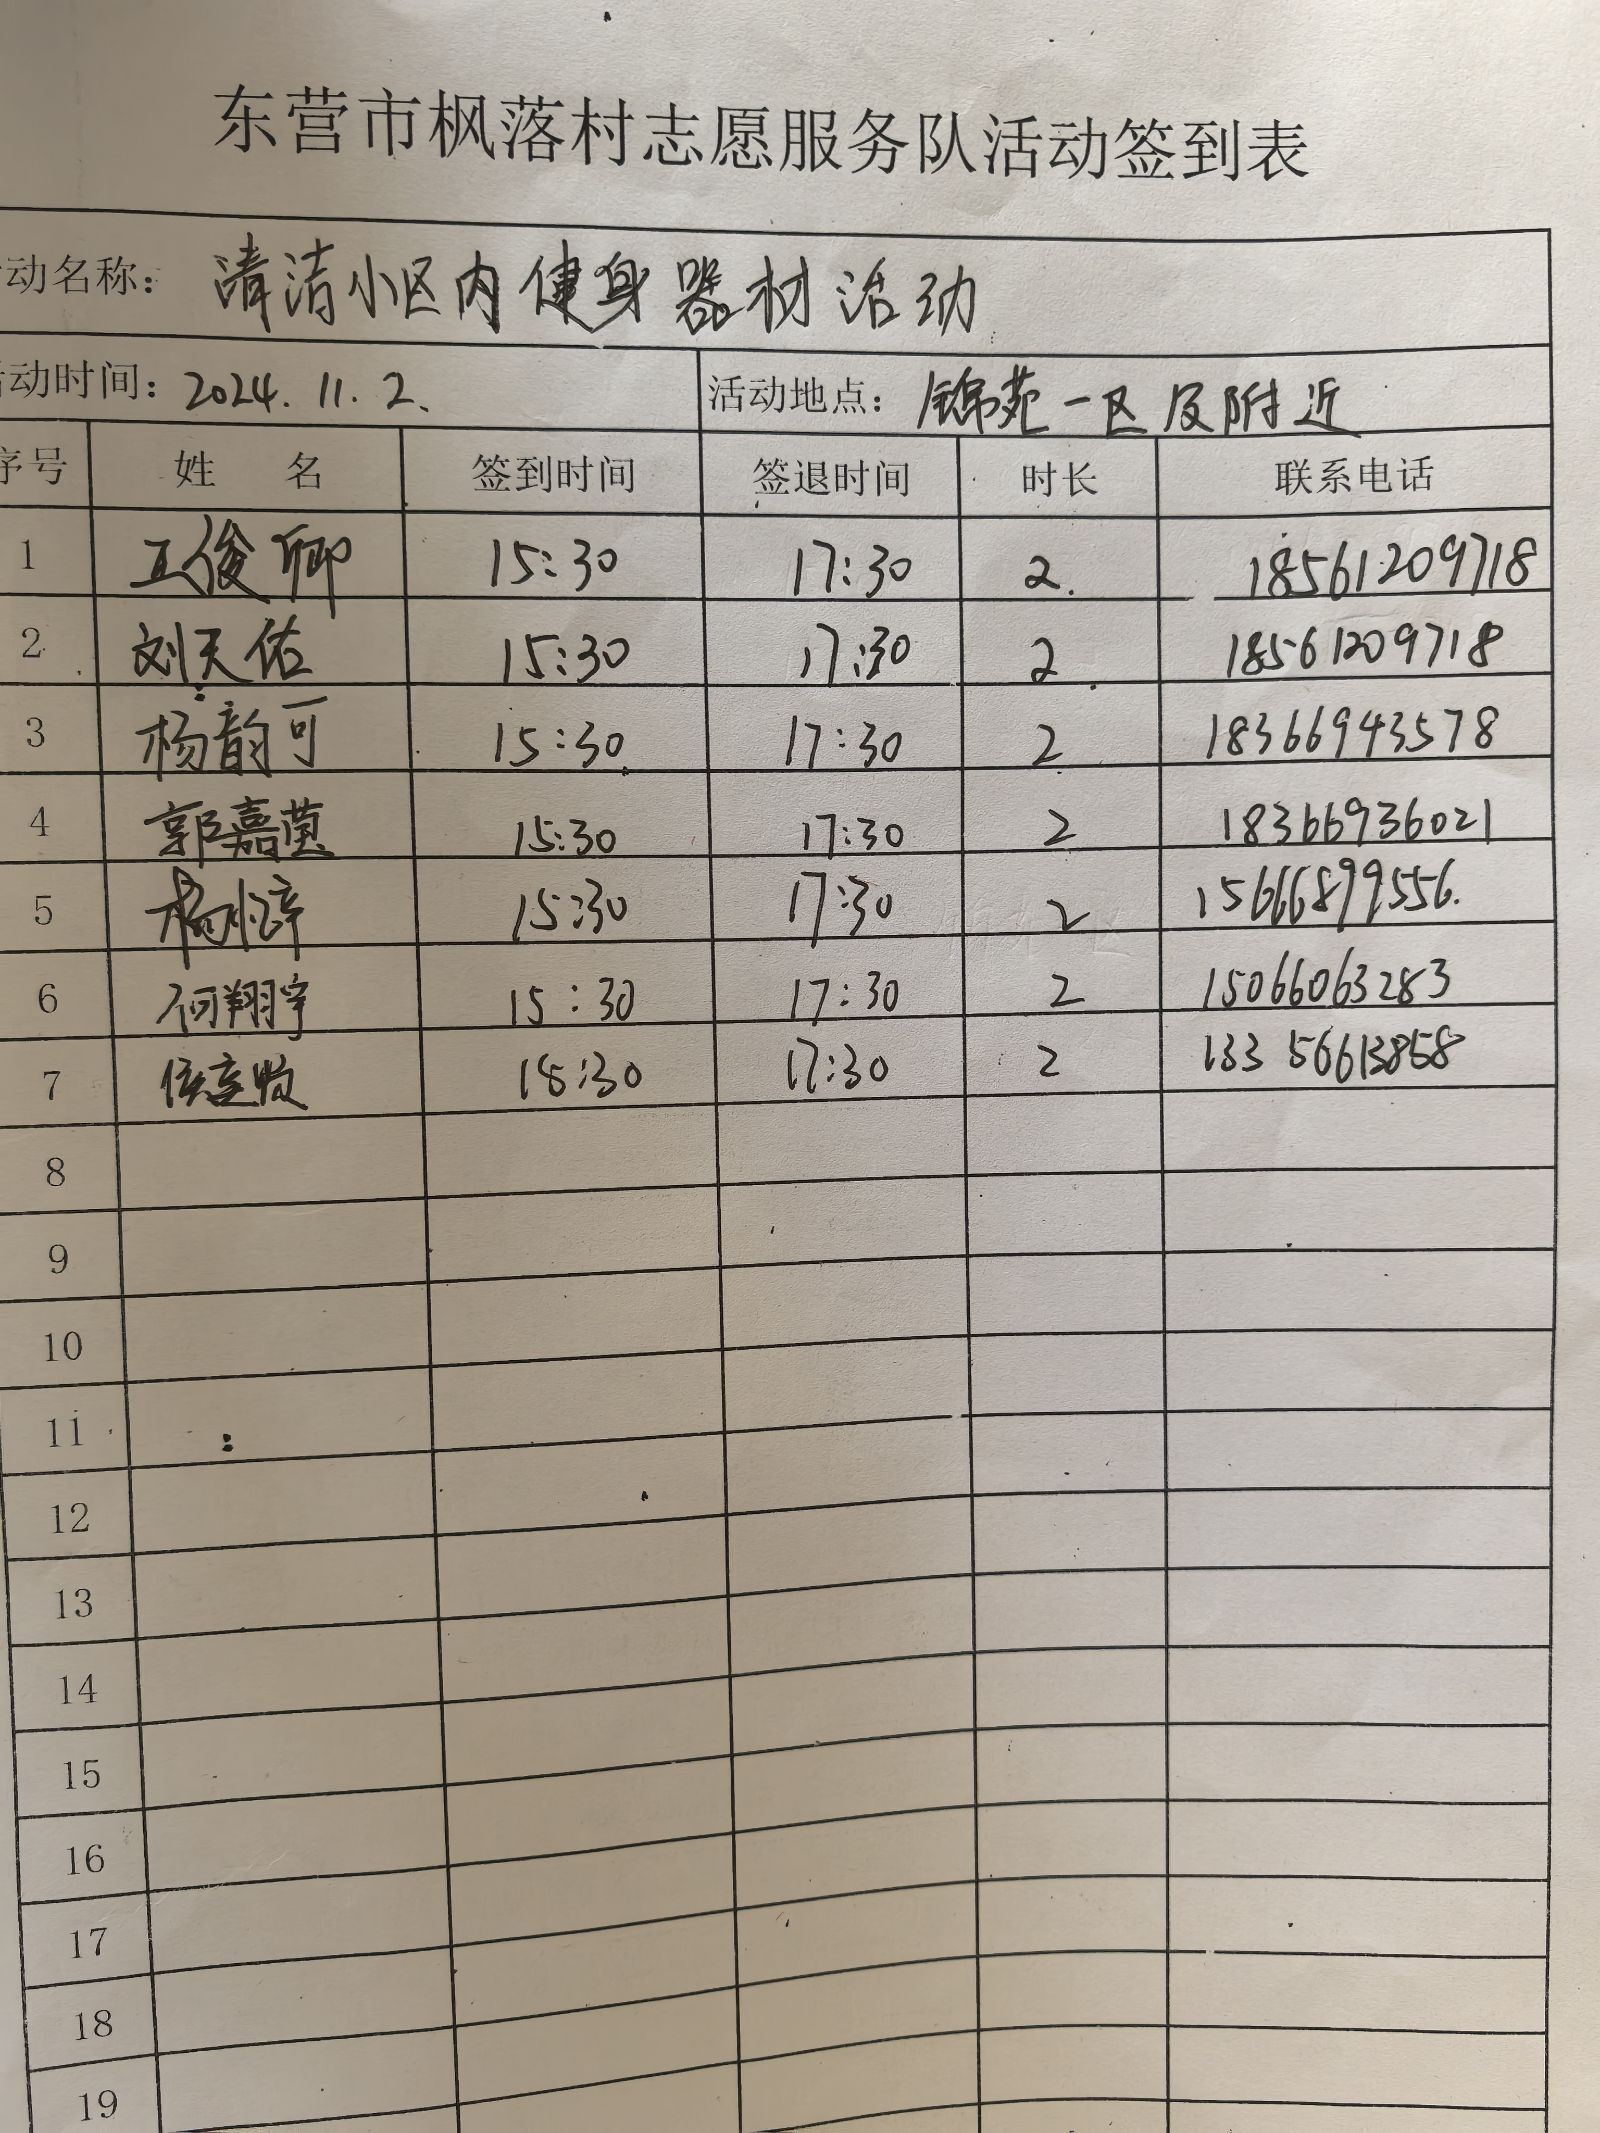 东营市枫落村志愿服务队活动签到表
动名称：清洁小区内健身器材活动
动时间：2024.11.2. 活动地点：锦苑一区及附近
序号 姓 名 签到时间 签退时间 时长 联系电话
1 王俊卿 15:30 17:30 2. 18561209718
2 刘天佑 15:30 17:30 2 18561209718
3 杨韵可 15:30 17:30 2 18366943578
4 郭嘉莹 15:30 17:30 2 18366936021
5 杨 15:30 17:30 2 15666899556.
6 何翔宇 15:30 17:30 2 15066063283
7 15:30 17:30 2 13356613858
8
9
10
11
12
13
14
15
16
17
18
19